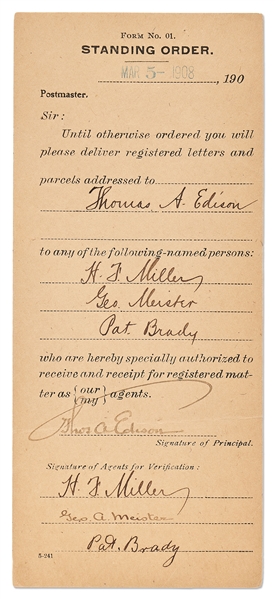 FORM NO. 01.
STANDING ORDER.
MAR 5- 1908
, 190
Postmaster.
Sir:
Until otherwise ordered you will
please deliver registered letters and
parcels addressed to
Thomas A. Edison
to any of the following-named persons:
H. F. Miller
Geo Meister
Pat Brady
who are hereby specially authorized to
receive and receipt for registered mat-
ter as {our my} agents.
Thos A Edison
Signature of Principal.
Signature of Agents for Verification:
H. F. Miller
Geo. A. Meister
Pat. Brady
5-241